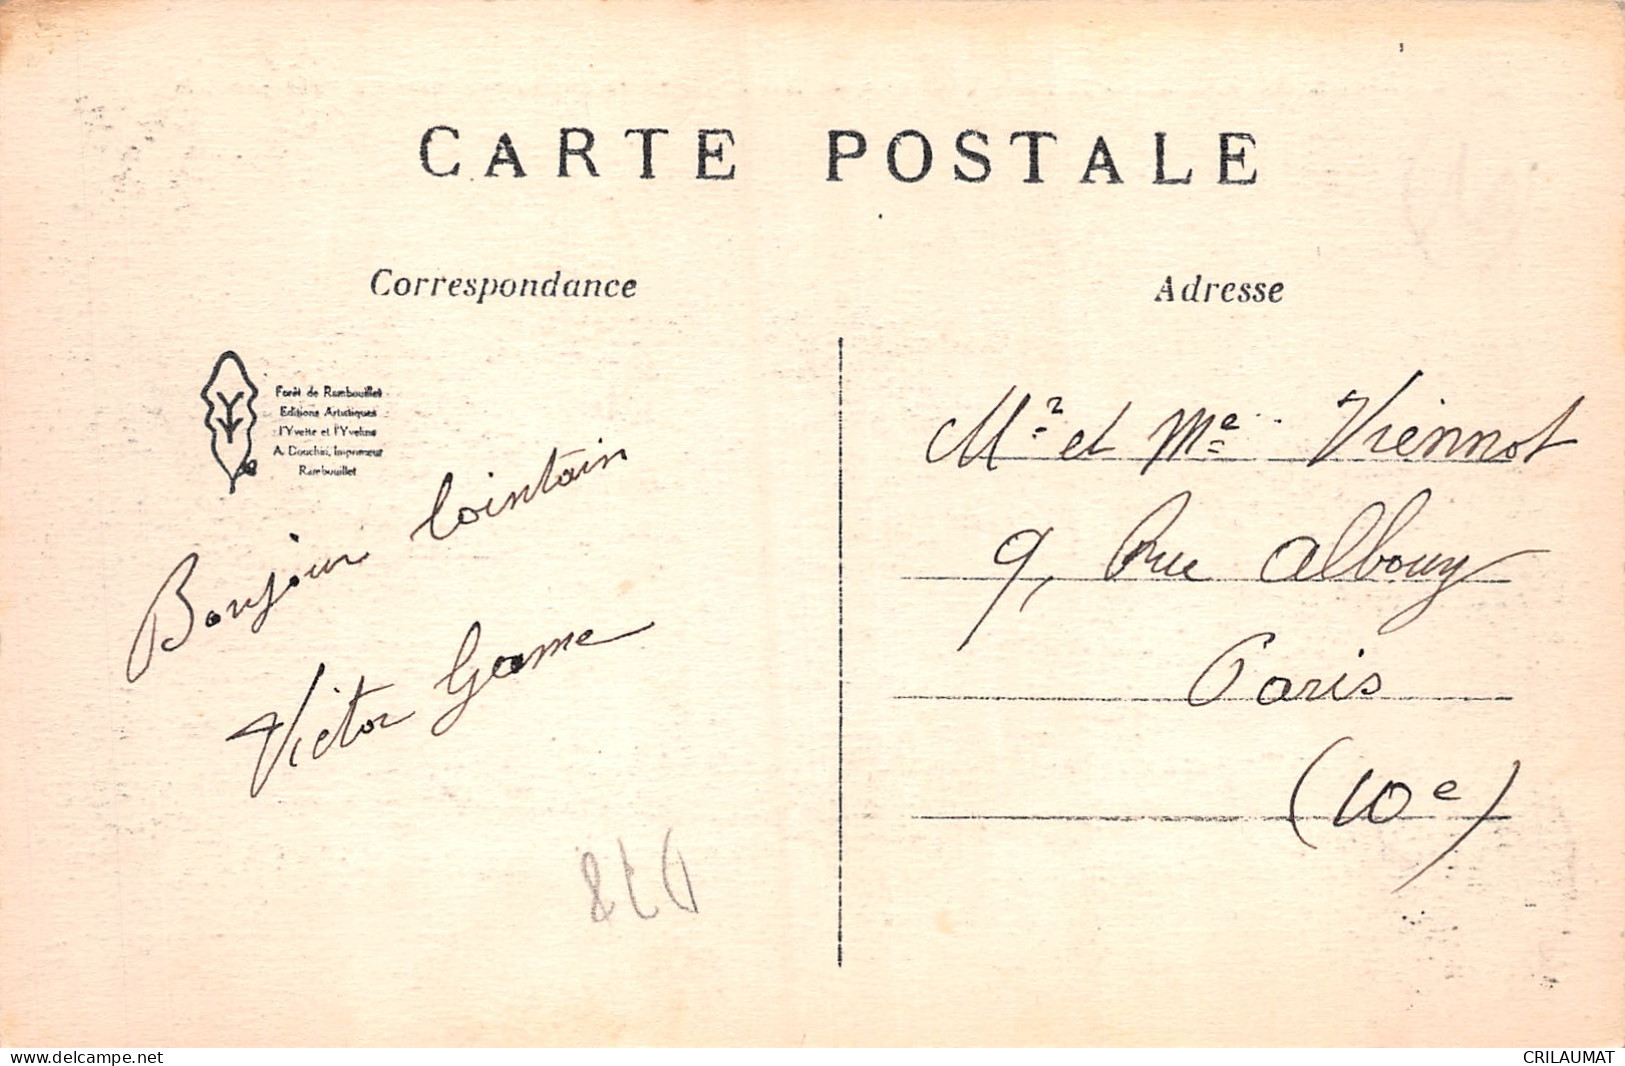 CARTE POSTALE
Correspondance
Adresse
Forêt de Rambouillet
Editions Artistiques
l'Yvette et l'Yveline
A. Douchin, Imprimeur
Rambouillet
Bonjour lointain
Victor Game
Mr et Me Viennot
9, Rue Albouy
Paris
(10e)
delcampe.net
CRILAUMAT